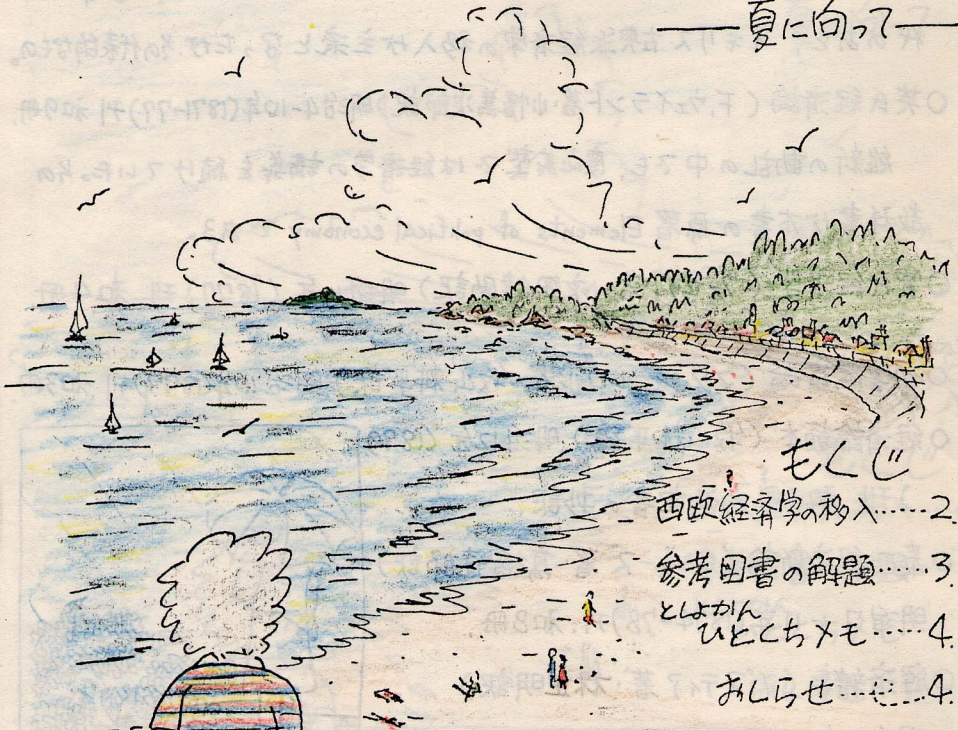 ―夏に向って―
もくじ
西欧経済学の移入……2.
参考図書の解題……3.
としょかん
ひとくちメモ……4.
おしらせ……4.